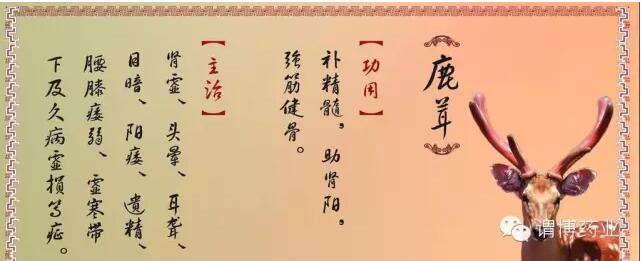 鹿茸
【功用】
补精髓。助肾阳。
强筋健骨。
【主治】
肾虚、头晕、耳聋、
目暗、阳痿、遗精、
腰膝痿弱、虚寒带
下及久病虚损等症。
谓博药业